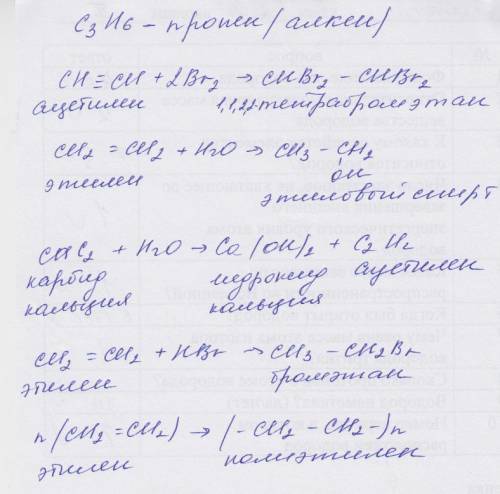 C₃H₆ – пропен (алкен)
CH≡CH + 2Br₂ → CHBr₂ – CHBr₂
ацетилен 1,1,2,2 тетрабромэтан
CH₂ = CH₂ + H₂O → CH₃ – CH₂
этилен OH
этиловый спирт
CaC₂ + H₂O → Ca(OH)₂ + C₂H₂
карбид гидроксид ацетилен
кальция кальция
CH₂ = CH₂ + HBr → CH₃ – CH₂Br
этилен бромэтан
n(CH₂=CH₂) → (-CH₂ – CH₂-)n
этилен полиэтилен